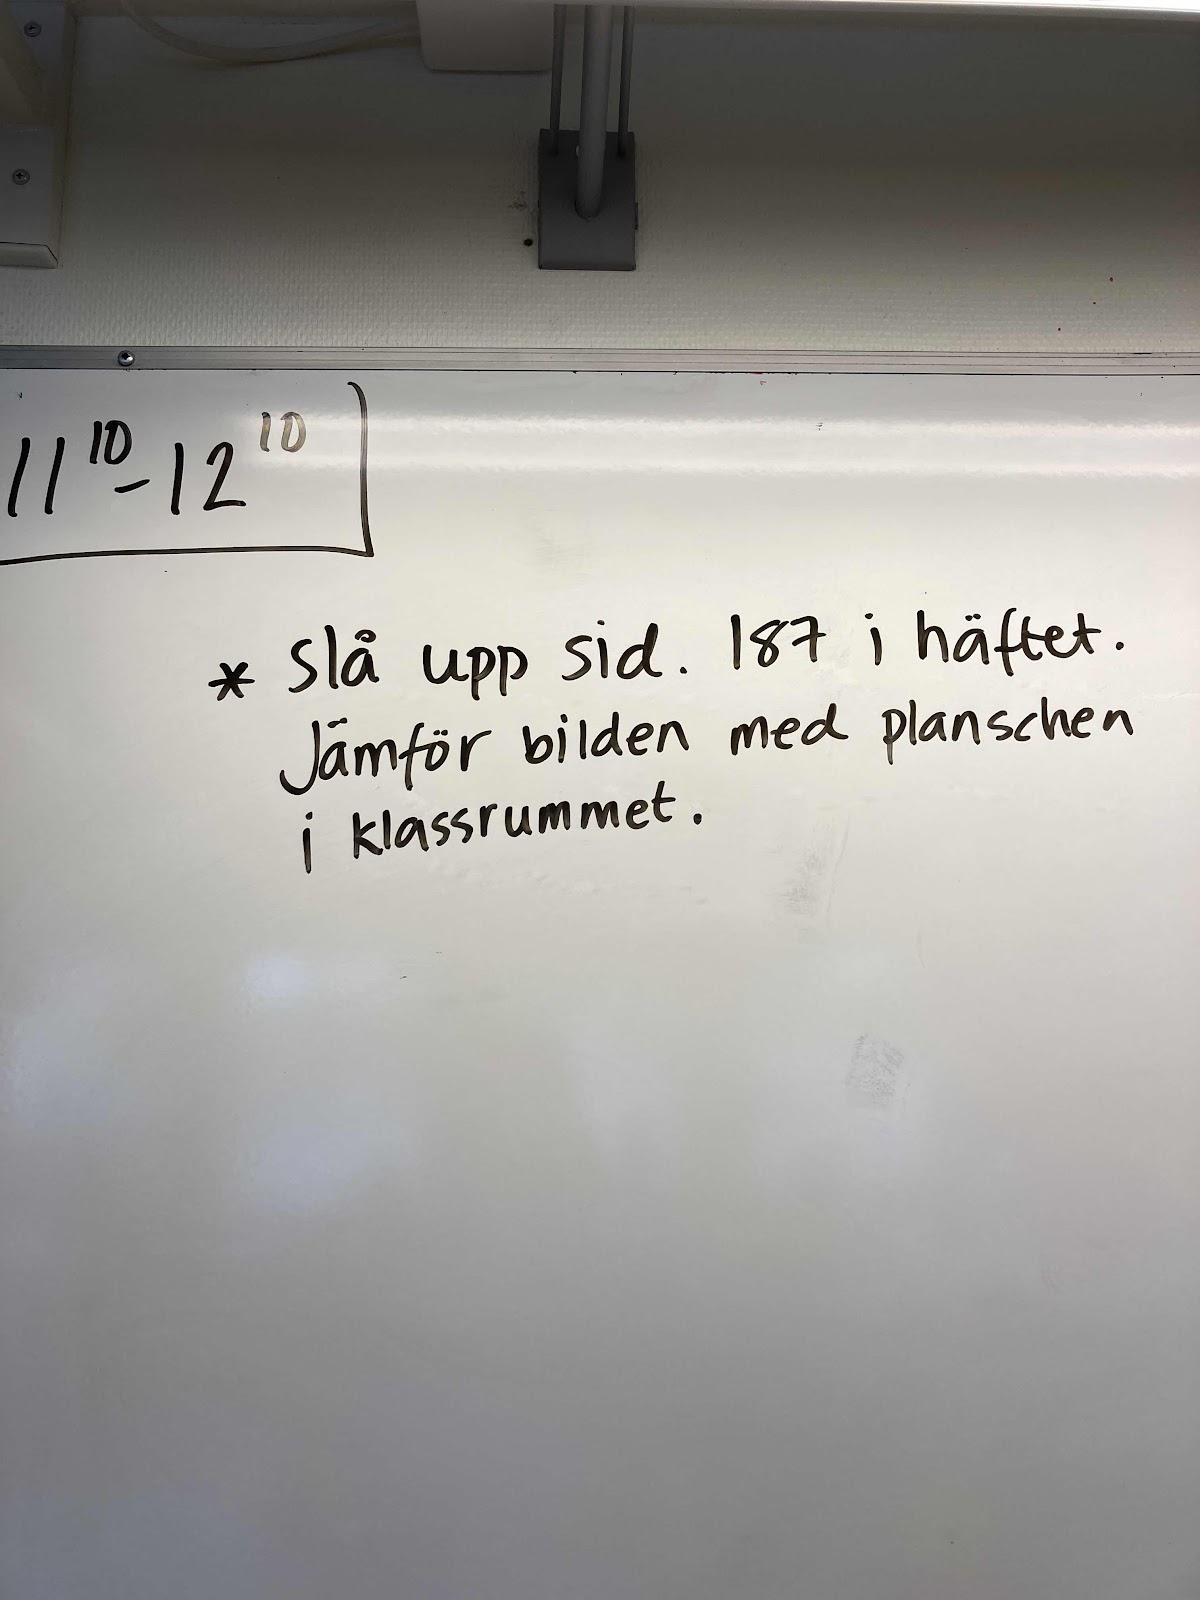 11¹⁰-12¹⁰
* Slå upp sid. 187 i häftet.
Jämför bilden med planschen
i klassrummet.